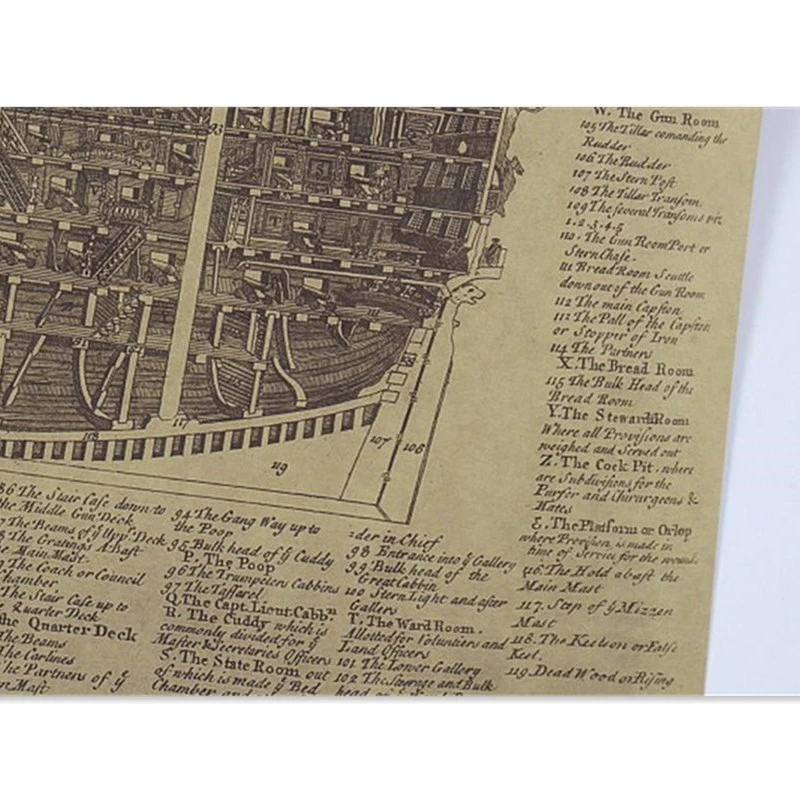 W. The Gun Room
105 The Tillar comanding the
Rudder
106 The Rudder
107 The Stern Post
108 The Tillar Transom.
109 The several Transoms viz.
1.2.3.4.5
110. The Gun Room Port or
Stern Chase.
111 Bread Room Scuttle
down out of the Gun Room
112 The main Capston
112 The Pall of the Capston
or Stopper of Iron
114 The Partners
X. The Bread Room
115 The Bulk Head of the
Bread Room
Y. The Steward Room
Where all Provisions are
weighed and Served out
Z. The Cock Pit. where
are Subdivisions for the
Purser and Chirurgeons &
Mates
&. The Platform or Orlop
where Provision is made in
time of Service for the wound
116. The Hold abaft the
Main Mast
117. Step of ẙ Mizzen
Mast
118. The Keelson or False
Keel.
119. Dead Wood or Rising
93
111
91
104
118
117
119
107
106
86 The Stair Case down to
the Middle Gun Deck
The Beams of ẙ Upp.r Deck
The Gratings Abaft
Main Mast.
The Coach or Council
Chamber
The Stair Case up to
Quarter Deck
the Quarter Deck
The Beams
The Carlines
The Partners of ẙ
Mast
94 The Gang Way up to
the Poop
95 Bulk head of ẙ Cuddy
P. The Poop
96 The Trumpeters Cabbins
97 The Taffarel
Q. The Capt. Lieut. Cabb.n
R. The Cuddy which is
commonly divided for ẙ
Master & Secretaries Officers
S. The State Room out
of which is made ẙ Bed
Chamber and
der in Chief
98 Entrance into ẙ Gallery
99 Bulk head of the
Great Cabbin
100 Stern Light and after
Gallery
T. The Ward Room.
Allotted for Voluntiers and
Land Officers
101 The Lower Gallery
102 The Steerage and Bulk
head of